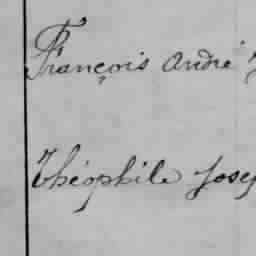 François André
Théophile Josep